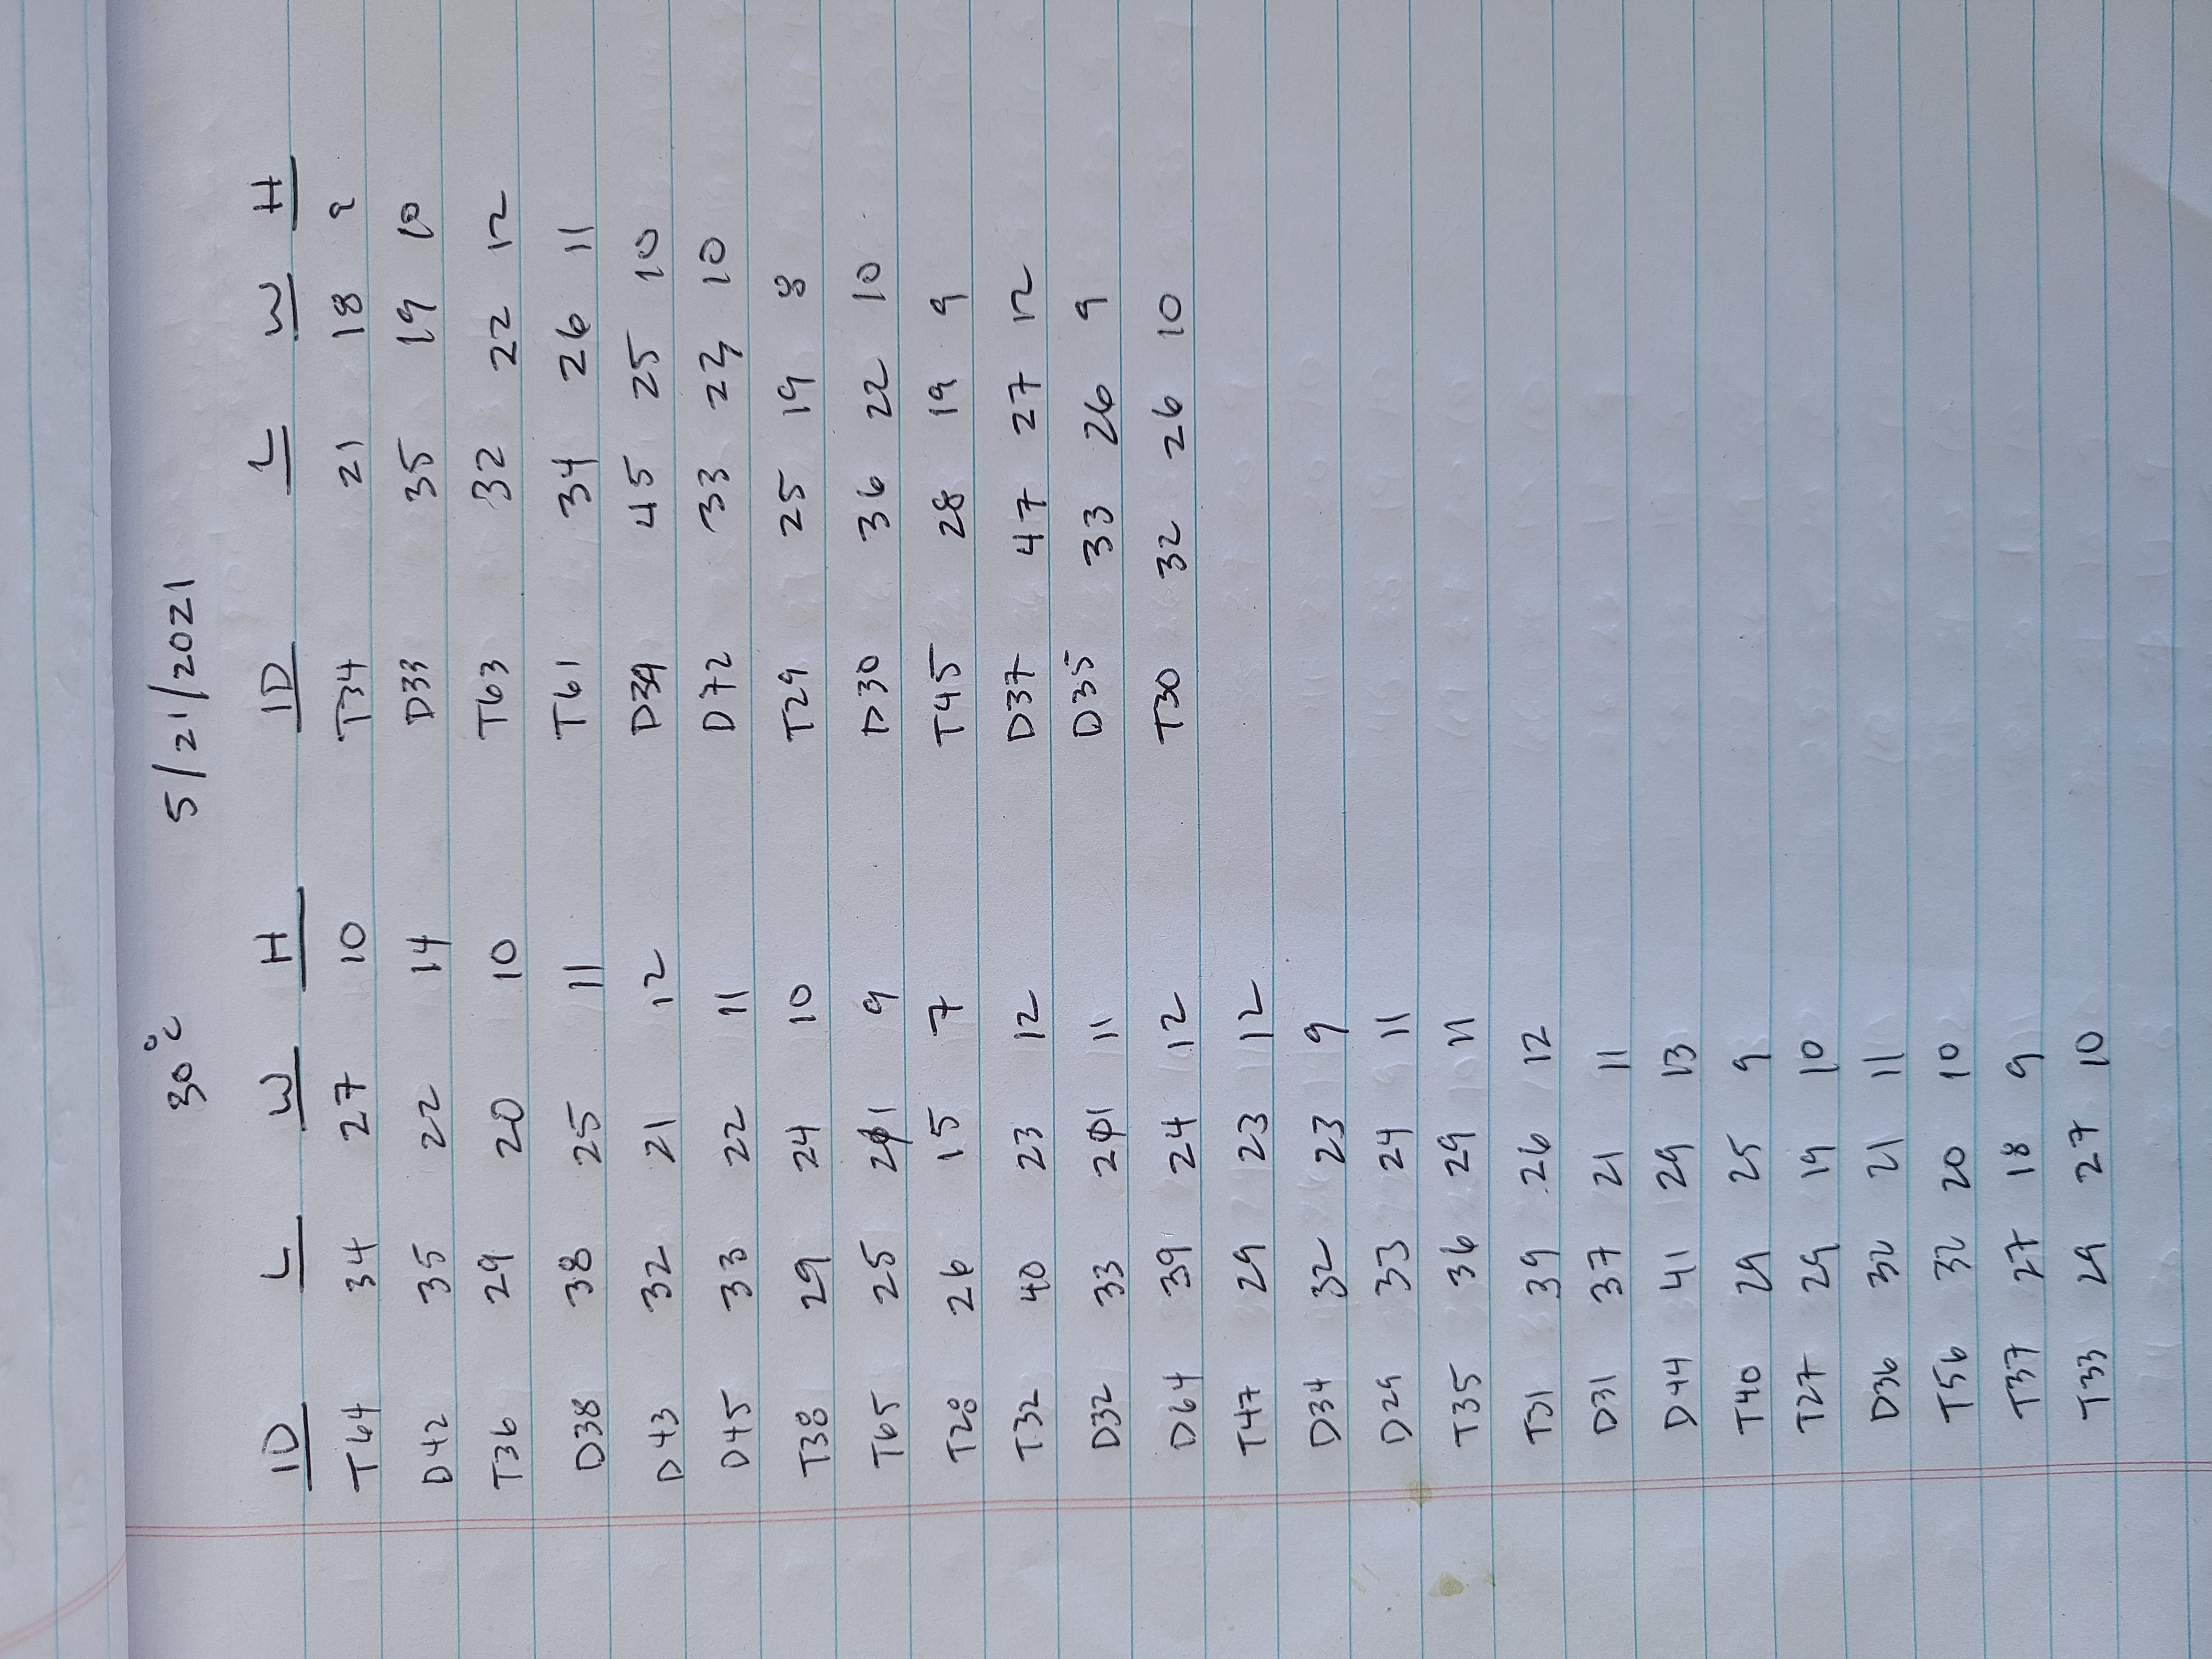 30°C 5/21/2021
ID L W H
T64 34 27 10
D42 35 22 14
T36 29 20 10
D38 38 25 11
D43 32 21 12
D45 33 22 11
T38 29 24 10
T65 25 21 9
T28 26 15 7
T32 40 23 12
D32 33 21 11
D64 39 24 12
T47 29 23 12
D34 32 23 9
D29 33 24 11
T35 36 29 11
T31 39 26 12
D31 37 21 11
D44 41 29 13
T40 29 25 9
T27 29 19 10
D36 32 21 11
T56 32 20 10
T37 27 18 9
T33 29 27 10
ID L W H
T34 21 18
D33 35 19 10
T63 32 22 12
T61 34 26 11
D39 45 25 10
D72 33 23 10
T29 25 19 8
D30 36 22 10
T45 28 19 9
D37 47 27 12
D35 33 26 9
T30 32 26 10